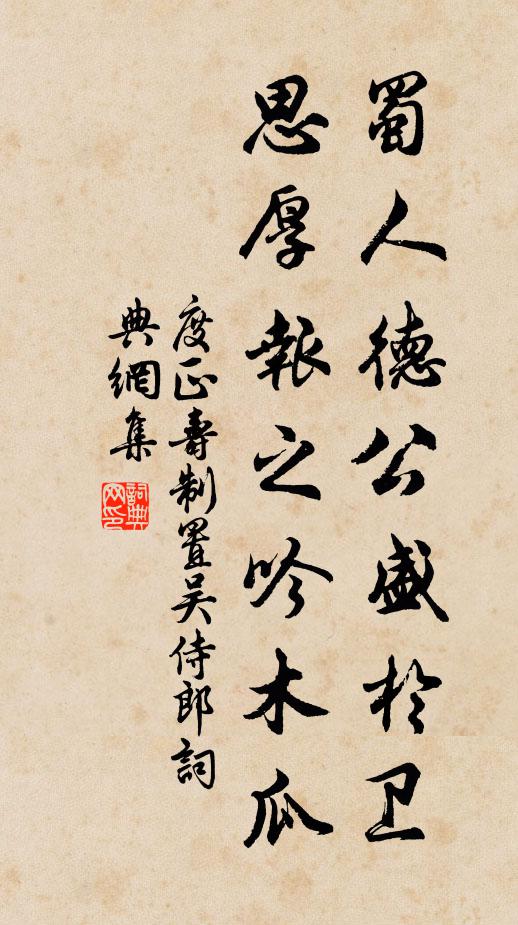 蜀人德公盛於卫
思厚報之吟木瓜
度正壽制置吴侍郎詞
典網集
詞典网印